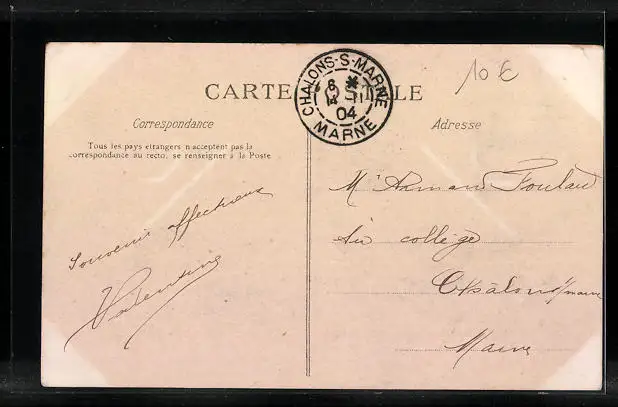 CARTE POSTALE
CHALONS-S-MARNE
8 *
14 11
04
MARNE
10 €
Correspondance
Tous les pays etrangers n'acceptent pas la
correspondance au recto, se renseigner à la Poste
Souvenir affectueux
Valentine
Adresse
Mr Armand
au collège
Châlons s/marne
Marne